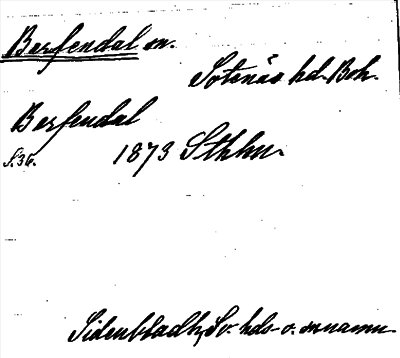 Berfendal sn.
Sotenäs hd. Boh.
Berfendal
S. 36. 1873 Sthhn.
Sidenbladh, Sv. hds- o. snnamn.